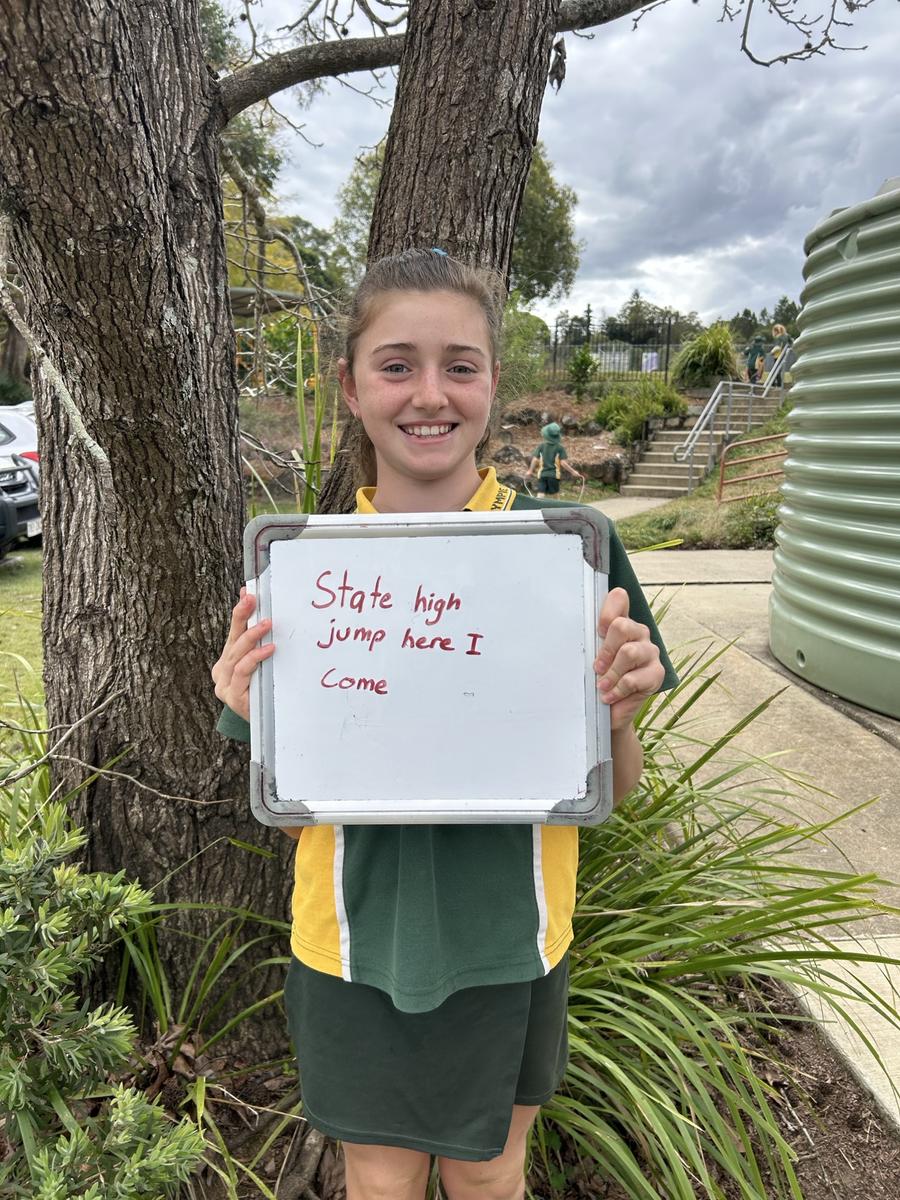 State high
jump here I
Come